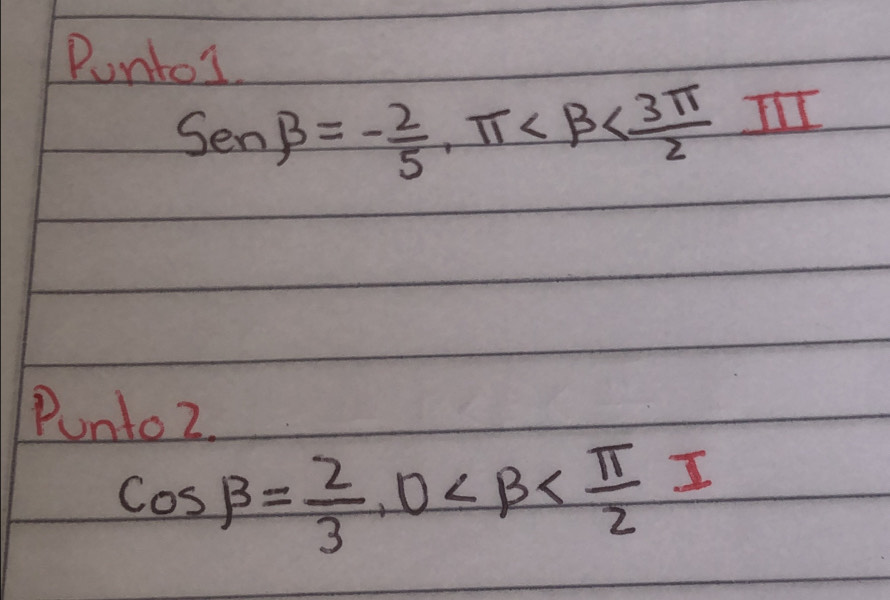 Punto 1.
Sen β = -2/5, π < β < 3π/2 III
Punto 2.
Cos β = 2/3, 0 < β < π/2 I